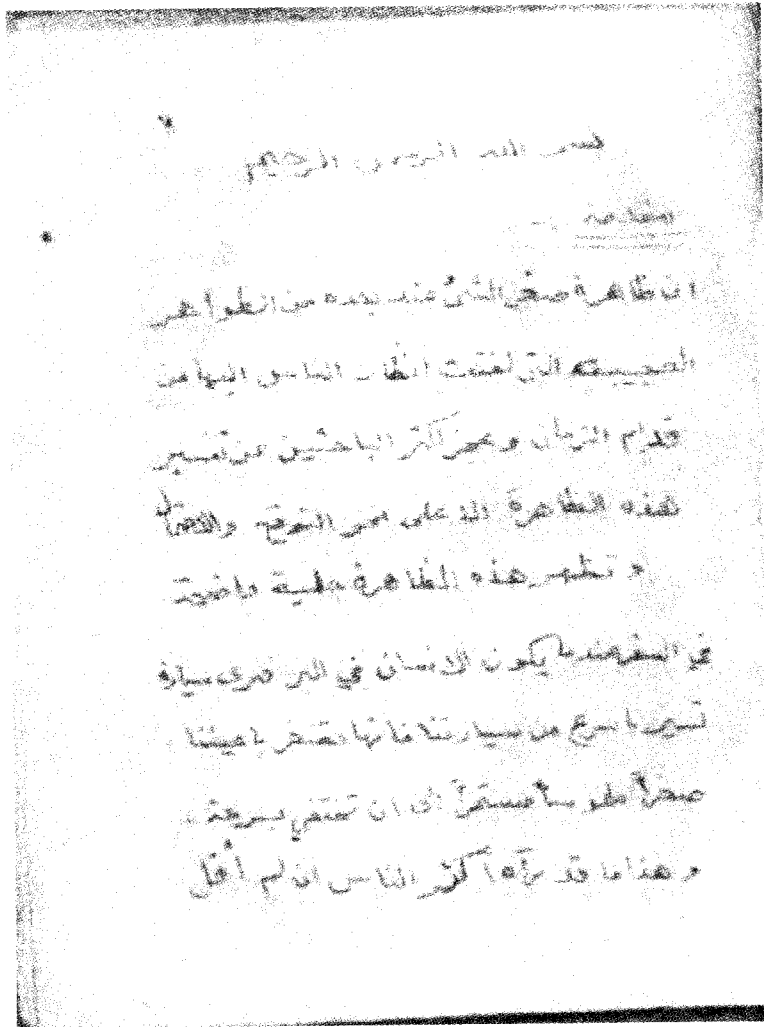 بسم الله الرحمن الرحيم
مقدمة
ان ظاهرة صغر الشئ عند بعده من الظواهر
العجيبة التي لفتت انظار الناس اليها من
قدام الزمان وعجز اكثر الباحثين عن تفسير
لهذه الظاهرة الا على سبيل التوقع
و تظهر هذه الظاهرة جلية واضحة
في السفر عندما يكون الانسان في البر فيرى سيارة
تسير باسرع من سيارتنا فانها تصغر باعيننا
صغراً ملموساً مستمراً الى ان تختفي بسرعة
و هذا ما قد رآه أكثر الناس ان لم أقل